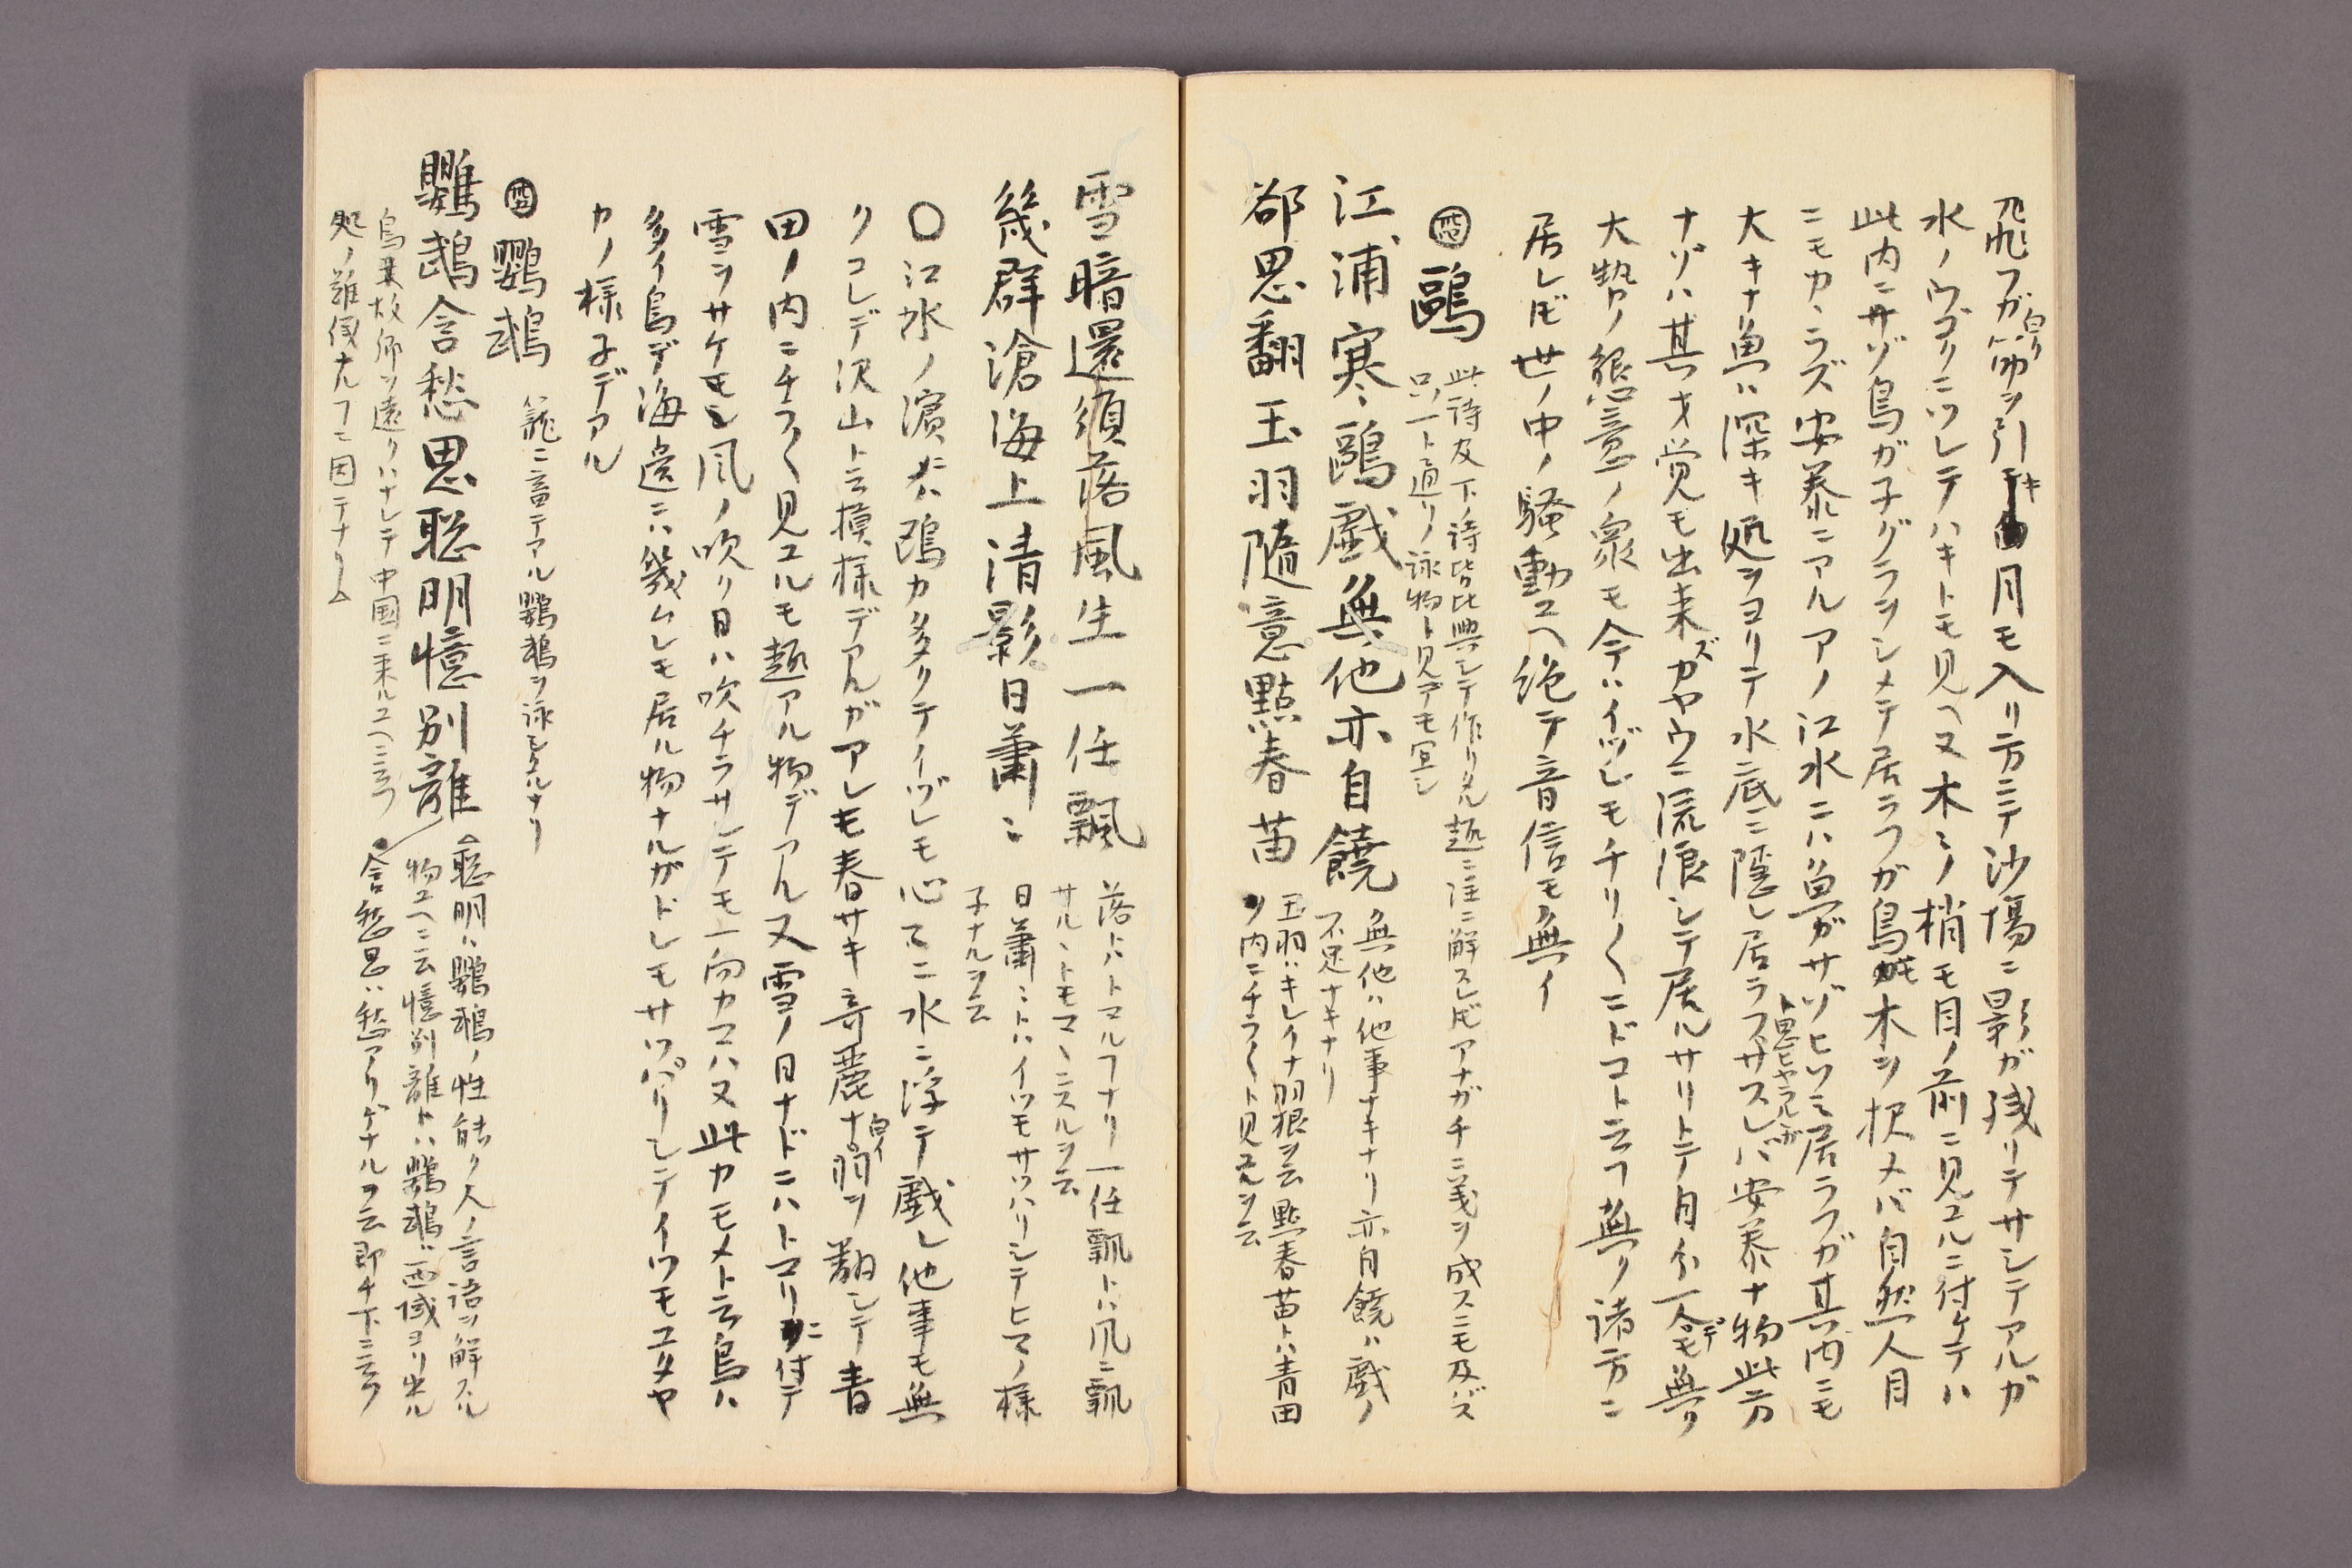 飛フガ白リ筋ヲ引キ月モ入リ方ニテ沙場ニ影ガ残リテサシテアルガ
水ノウゴリニツレテハキトモ見ヘヌ木ミノ梢モ目ノ前ニ見ユルニ付ケテハ
此内ニサゾ鳥ガ子グラヲシメテ居ラフガ鳥モ木ヲ択メバ自然人目
ニモカヽラズ安泰ニアルアノ江水ニハ魚ガサゾヒソミ居ラフガ其内ニモ
大キナ魚ハ深キ処ヲヨリテ水底ニ隠レ居ラフト思ヒヤラルヽガサスレバ安泰ナ物此方
ナゾハ其才覚モ出来ズカヤウニ流浪シテ居ルサリトテ自分一人デモ無ク
大勢ノ懇意ノ衆モ今ハイヅレモチリ〱ニドコト云フ無ク諸方ニ
居レ𪜈世ノ中ノ騒動ユヘ絶テ音信モ無イ
鷗
此詩及下ノ詩皆比興シテ作リタル趣ニ註ニ解スレ𪜈アナガチニ義ヲ成スニモ及バズ
只一ト通リノ詠物ト見テモ宜シ
江浦寒鷗戲無他亦自饒
無他ハ他事ナキナリ亦自饒ハ戯ノ
不足ナキナリ
郤思翻玉羽隨意點春苗
玉羽ハキレイナ羽根ヲ云點春苗トハ青田
ノ内ニチラ〱ト見ユルヲ云
雪暗還須落風生一任飄
落トハトマルフナリ一任飄トハ風ニ飄
サルヽトモマヽニスルヲ云
幾群滄海上清影日蕭ミ
日蕭ミトハイツモサツハリシテヒマノ様
子ナルヲ云
〇江水ノ濱ニハ鷗カ多クテイヅレモ心マヽニ水ニ浮テ戯レ他事モ無
クコレデ沢山ト云摸様デアルガアレモ春サキ奇麗ナ白イ羽ヲ翻シテ青
田ノ内ニチラ〱見ユルモ趣アル物デアル又雪ノ日ナドニハトマリニ付テ
雪ヲサケモシ風ノ吹ク日ハ吹チラサレテモ一向カマハヌ此カモメト云鳥ハ
多イ鳥デ海邊ニハ幾ムレモ居ル物ナルガドレモサツパリシテイツモユタヤ
カノ様子デアル
鸚鵡
籠ニ畜テアル鸚鵡ヲ詠シタルナリ
鸚鵡含愁思聡明憶別離
聡明ハ鸚鵡ノ性能ク人ノ言語ヲ解スル
物ユヘニ云憶別離トハ鸚鵡ハ西域ヨリ出ル
鳥故郷ヲ遠クハナレテ中国ニ来ルユヘニ云フ
含愁思ハ愁アリゲナルヲ云即チ下ニ云フ
処ノ難儀ナルフニ因テナリ